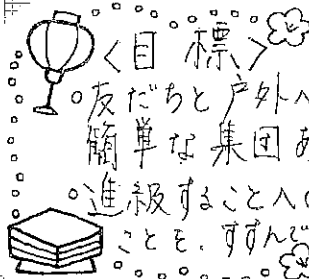 <目標>
○友だちと戸外へ
簡単な集団あ
○進級すること入の
ことも、すすんで